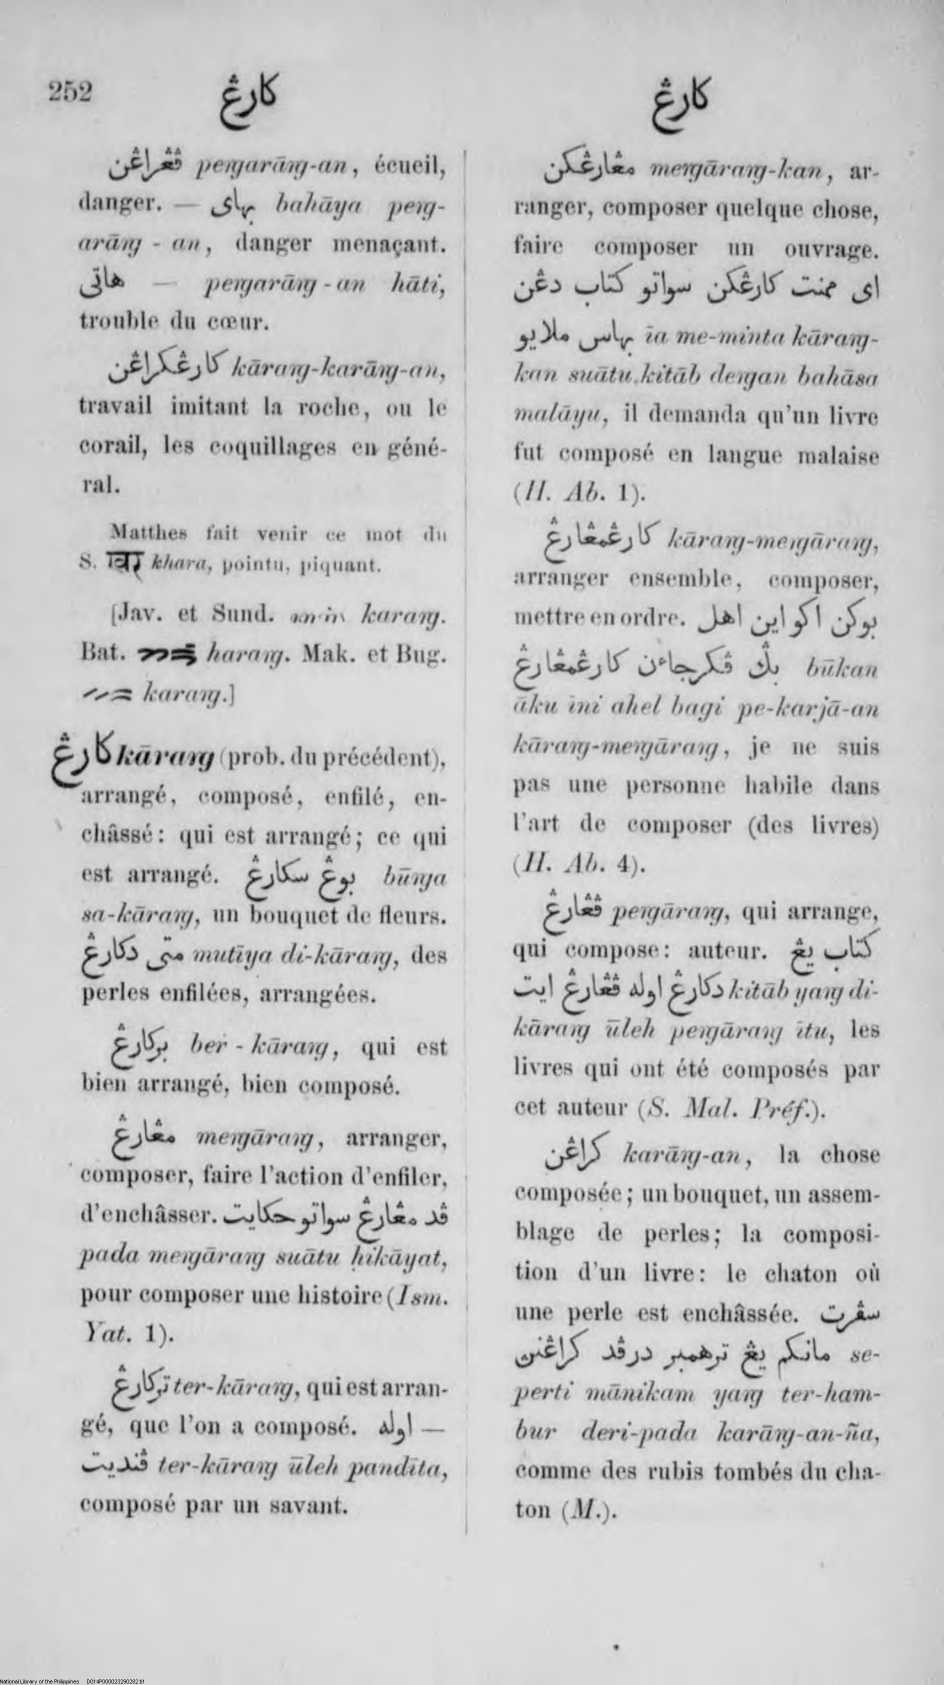 252
كارڠ
كارڠ
ڤڠراڠن pengarāng-an, écueil,
danger. — بهاى bahāya peng-
arāng - an, danger menaçant.
هاتى — pengarāng-an hāti,
trouble du cœur.
كارڠكراڠن kārang-karāng-an,
travail imitant la roche, ou le
corail, les coquillages en géné-
ral.
Matthes fait venir ce mot du
S. खर khara, pointu, piquant.
[Jav. et Sund. karang.
Bat. harang. Mak. et Bug.
karang.]
كارڠ kārang (prob. du précédent),
arrangé, composé, enfilé, en-
châssé: qui est arrangé; ce qui
est arrangé. بوڠ سكارڠ būnga
sa-kārang, un bouquet de fleurs.
متى دكارڠ mutīya di-kārang, des
perles enfilées, arrangées.
بركارڠ ber - kārang, qui est
bien arrangé, bien composé.
مڠارڠ mengārang, arranger,
composer, faire l'action d'enfiler,
d'enchâsser. ڤد مڠارڠ سواتو حكايت
pada mengārang suātu ḥikāyat,
pour composer une histoire (Ism.
Yat. 1).
تركارڠ ter-kārang, qui est arran-
gé, que l'on a composé. اوله —
ڤنديت ter-kārang ūleh pandīta,
composé par un savant.
مڠارڠكن mengārang-kan, ar-
ranger, composer quelque chose,
faire composer un ouvrage.
اى ممنت كارڠكن سواتو كتاب دڠن
بهاس ملايو īa me-minta kārang-
kan suātu kitāb dengan bahāsa
malāyu, il demanda qu'un livre
fut composé en langue malaise
(H. Ab. 1).
كارڠمڠارڠ kārang-mengārang,
arranger ensemble, composer,
mettre en ordre. بوكن اكو اين اهل
بڬ ڤكرجاءن كارڠمڠارڠ būkan
āku īni ahel bagi pe-karjā-an
kārang-mengārang, je ne suis
pas une personne habile dans
l'art de composer (des livres)
(H. Ab. 4).
ڤڠارڠ pengārang, qui arrange,
qui compose: auteur. كتاب يڠ
دكارڠ اوله ڤڠارڠ ايت kitāb yang di-
kārang ūleh pengārang ītu, les
livres qui ont été composés par
cet auteur (S. Mal. Préf.).
كراڠن karāng-an, la chose
composée; un bouquet, un assem-
blage de perles; la composi-
tion d'un livre: le chaton où
une perle est enchâssée. سڤرت
مانكم يڠ ترهمبر درڤد كراڠنڽ se-
perti mānikam yang ter-ham-
bur deri-pada karāng-an-ña,
comme des rubis tombés du cha-
ton (M.).
National Library of the Philippines